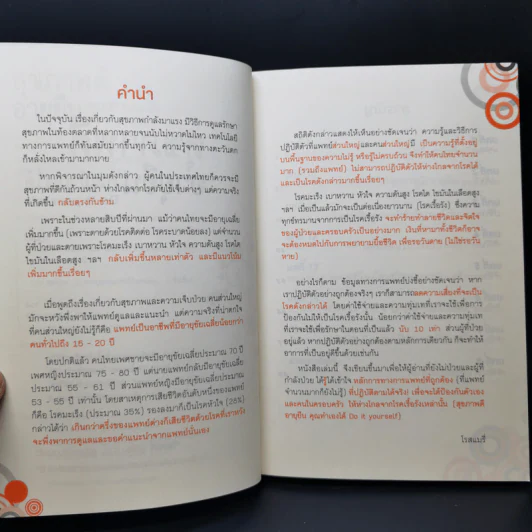 คำนำ
ในปัจจุบัน เรื่องเกี่ยวกับสุขภาพกำลังมาแรง มีวิธีการดูแลรักษา
สุขภาพในท้องตลาดที่หลากหลายจนนับไม่หวาดไม่ไหว เทคโนโลยี
ทางการแพทย์ก็ทันสมัยมากขึ้นทุกวัน ความรู้จากทางตะวันตก
ก็หลั่งไหลเข้ามามากมาย
หากพิจารณาในมุมดังกล่าว ผู้คนในประเทศไทยก็ควรจะมี
สุขภาพที่ดีกันถ้วนหน้า ห่างไกลจากโรคภัยไข้เจ็บต่างๆ แต่ความจริง
ที่เกิดขึ้น กลับตรงกันข้าม
เพราะในช่วงหลายสิบปีที่ผ่านมา แม้ว่าคนไทยจะมีอายุเฉลี่ย
เพิ่มมากขึ้น (เพราะตายด้วยโรคติดต่อ โรคระบาดน้อยลง) แต่จำนวน
ผู้ที่ป่วยและตายเพราะโรคมะเร็ง เบาหวาน หัวใจ ความดันสูง โรคไต
ไขมันในเลือดสูง ฯลฯ กลับเพิ่มขึ้นหลายเท่าตัว และมีแนวโน้ม
เพิ่มมากขึ้นเรื่อยๆ
เมื่อพูดถึงเรื่องเกี่ยวกับสุขภาพและความเจ็บป่วย คนส่วนใหญ่
มักจะหวังพึ่งพาให้แพทย์ดูแลและแนะนำ แต่ความจริงที่น่าตกใจ
ที่คนส่วนใหญ่ยังไม่รู้ก็คือ แพทย์เป็นอาชีพที่มีอายุเฉลี่ยน้อยกว่า
คนทั่วไปถึง 15 - 20 ปี
โดยปกติแล้ว คนไทยเพศชายจะมีอายุขัยเฉลี่ยประมาณ 70 ปี
เพศหญิงประมาณ 75 - 80 ปี แต่นายแพทย์กลับมีอายุขัยเฉลี่ย
ประมาณ 55 - 61 ปี ส่วนแพทย์หญิงมีอายุขัยเฉลี่ยประมาณ
53 - 55 ปี เท่านั้น โดยสาเหตุการเสียชีวิตอันดับหนึ่งของแพทย์
ก็คือ โรคมะเร็ง (ประมาณ 36%) รองลงมาก็เป็นโรคหัวใจ (26%)
กล่าวได้ว่า เกินกว่าครึ่งของแพทย์ต่างก็เสียชีวิตด้วยโรคที่เราหวัง
จะพึ่งพาการดูแลและขอคำแนะนำจากแพทย์นั่นเอง
สถิติดังกล่าวแสดงให้เห็นอย่างชัดเจนว่า ความรู้และวิธีการ
ปฏิบัติตัวที่แพทย์ส่วนใหญ่และคนส่วนใหญ่มี เป็นความรู้ที่ตั้งอยู่
บนพื้นฐานของความไม่รู้ หรือรู้ไม่ครบถ้วน จึงทำให้คนไทยจำนวน
มาก (รวมถึงแพทย์) ไม่สามารถปฏิบัติตัวให้ห่างไกลจากโรคได้
และเป็นโรคดังกล่าวมากขึ้นเรื่อยๆ
โรคมะเร็ง เบาหวาน หัวใจ ความดันสูง โรคไต ไขมันในเลือดสูง
ฯลฯ เมื่อเป็นแล้วมักจะเป็นต่อเนื่องยาวนาน (โรคเรื้อรัง) ซึ่งความ
ทุกข์ทรมานจากการเป็นโรคเรื้อรัง จะทำร้ายทำลายชีวิตและจิตใจ
ของผู้ป่วยและครอบครัวเป็นอย่างมาก เงินที่หามาทั้งชีวิตก็อาจ
จะต้องหมดไปกับการพยายามยื้อชีวิต เพื่อรอวันตาย (ไม่ใช่รอวัน
หาย)
อย่างไรก็ตาม ข้อมูลทางการแพทย์บ่งชี้อย่างชัดเจนว่า หาก
เราปฏิบัติตัวอย่างถูกต้องจริงๆ เราก็สามารถลดความเสี่ยงที่จะเป็น
โรคดังกล่าวได้ โดยค่าใช้จ่ายและความทุ่มเทที่เราจะใช้เพื่อการ
ป้องกันไม่ให้เป็นโรคเรื้อรังนั้น น้อยกว่าค่าใช้จ่ายและความทุ่มเท
ที่เราจะใช้เพื่อรักษาในตอนที่เป็นแล้ว นับ 10 เท่า ส่วนผู้ที่ป่วย
อยู่แล้ว หากปฏิบัติตัวอย่างถูกต้องตามหลักการเดียวกัน ก็จะทำให้
อาการที่เป็นอยู่ดีขึ้นด้วยเช่นกัน
หนังสือเล่มนี้ จึงเขียนขึ้นมาเพื่อให้ผู้อ่านที่ยังไม่ป่วยและผู้ที่
กำลังป่วย ได้รู้ได้เข้าใจ หลักการทางการแพทย์ที่ถูกต้อง (ที่แพทย์
จำนวนมากก็ยังไม่รู้) ที่ปฏิบัติตามได้จริง! เพื่อจะได้ป้องกันตัวเอง
และคนในครอบครัว ให้ห่างไกลจากโรคเรื้อรังเหล่านั้น (สุขภาพดี
อายุยืน คุณทำเองได้ Do it yourself)
โรสแมรี่